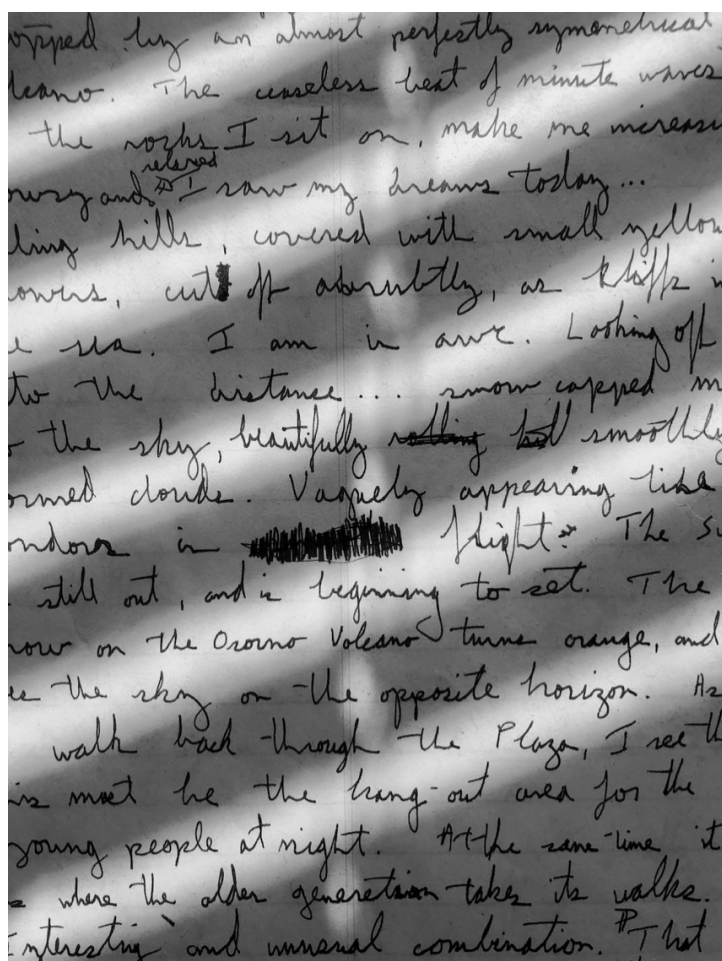 opped by an almost perfectly symmetrical
lcano. The ceaseless beat of minute waves
the rocks I sit on, make me increasi
relaxed
owsy and I saw my dreams today...
lling hills, covered with small yellow
lowers, cut off abrubtly, as kliffs in
e sea. I am in awe. Looking off
to the distance... snow capped m
o the sky, beautifully rolling but smoothly
ormed clouds. Vaguely appearing like
ondors in flight. The su
still out, and is beginning to set. The
now on the Osorno Volcano turns orange, and
ee the sky on the opposite horizon. As
walk back through the Plaza, I see th
is must be the hang-out area for the
young people at night. At the same time it
s where the older generation takes its walks.
interesting and unusual combination. That